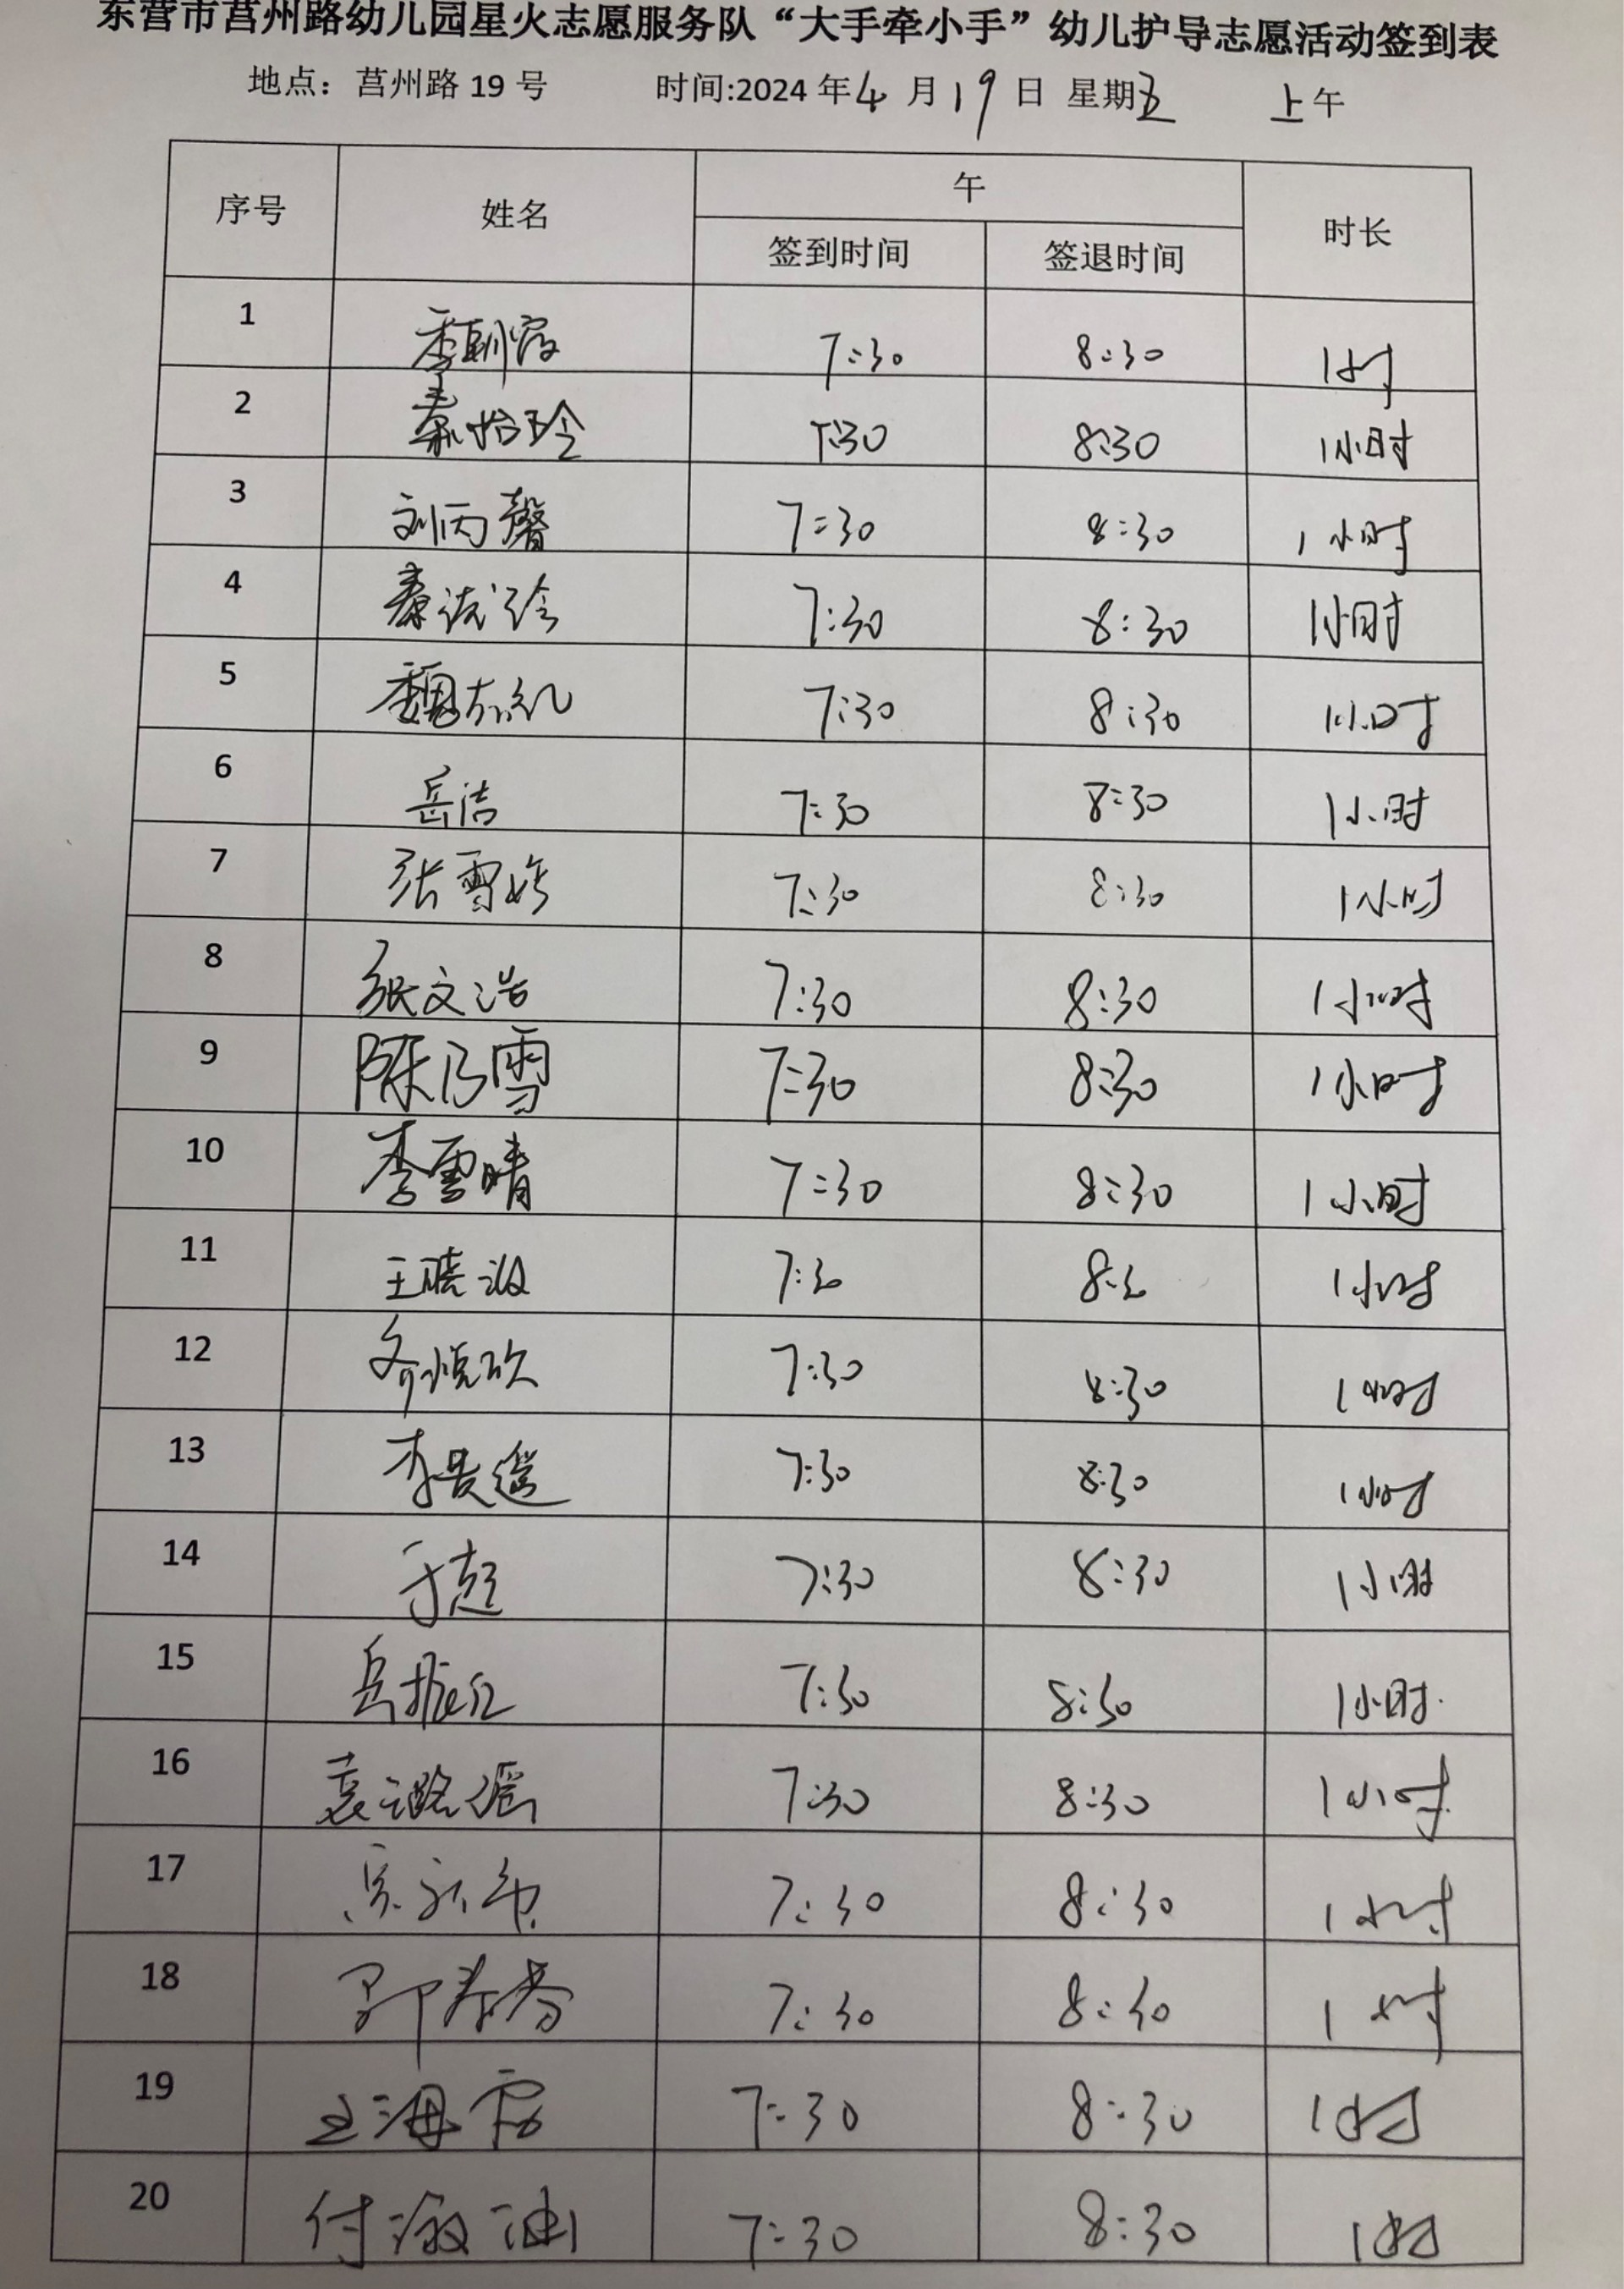 东营市莒州路幼儿园星火志愿服务队“大手牵小手”幼儿护导志愿活动签到表
地点：莒州路 19 号 时间:2024 年 4 月 19 日 星期五 上午
序号 姓名 午 时长
签到时间 签退时间
1 李朝霞 7:30 8:30 1小时
2 秦怡玲 7:30 8:30 1小时
3 刘丙馨 7:30 8:30 1小时
4 秦诚玲 7:30 8:30 1小时
5 魏志礼 7:30 8:30 1小时
6 岳洁 7:30 8:30 1小时
7 张雪婷 7:30 8:30 1小时
8 张文浩 7:30 8:30 1小时
9 陈乃雪 7:30 8:30 1小时
10 李雪晴 7:30 8:30 1小时
11 王晓 7:30 8:30 1小时
12 齐悦欣 7:30 8:30 1小时
13 李昊遥 7:30 8:30 1小时
14 于超 7:30 8:30 1小时
15 岳振江 7:30 8:30 1小时
16 袁潞瑶 7:30 8:30 1小时
17 7:30 8:30 1小时
18 7:30 8:30 1小时
19 王海霞 7:30 8:30 1小时
20 付淑 7:30 8:30 1小时